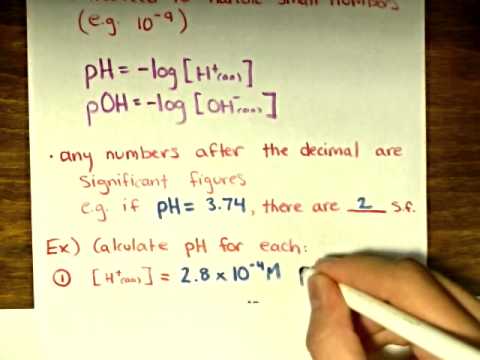 to handle small numbers
(e.g. 10⁻⁹)
pH = -log [H⁺(aq)]
pOH = -log [OH⁻(aq)]
· any numbers after the decimal are
significant figures
e.g. if pH = 3.74, there are 2 s.f.
Ex) Calculate pH for each:
① [H⁺(aq)] = 2.8 x 10⁻⁴ M